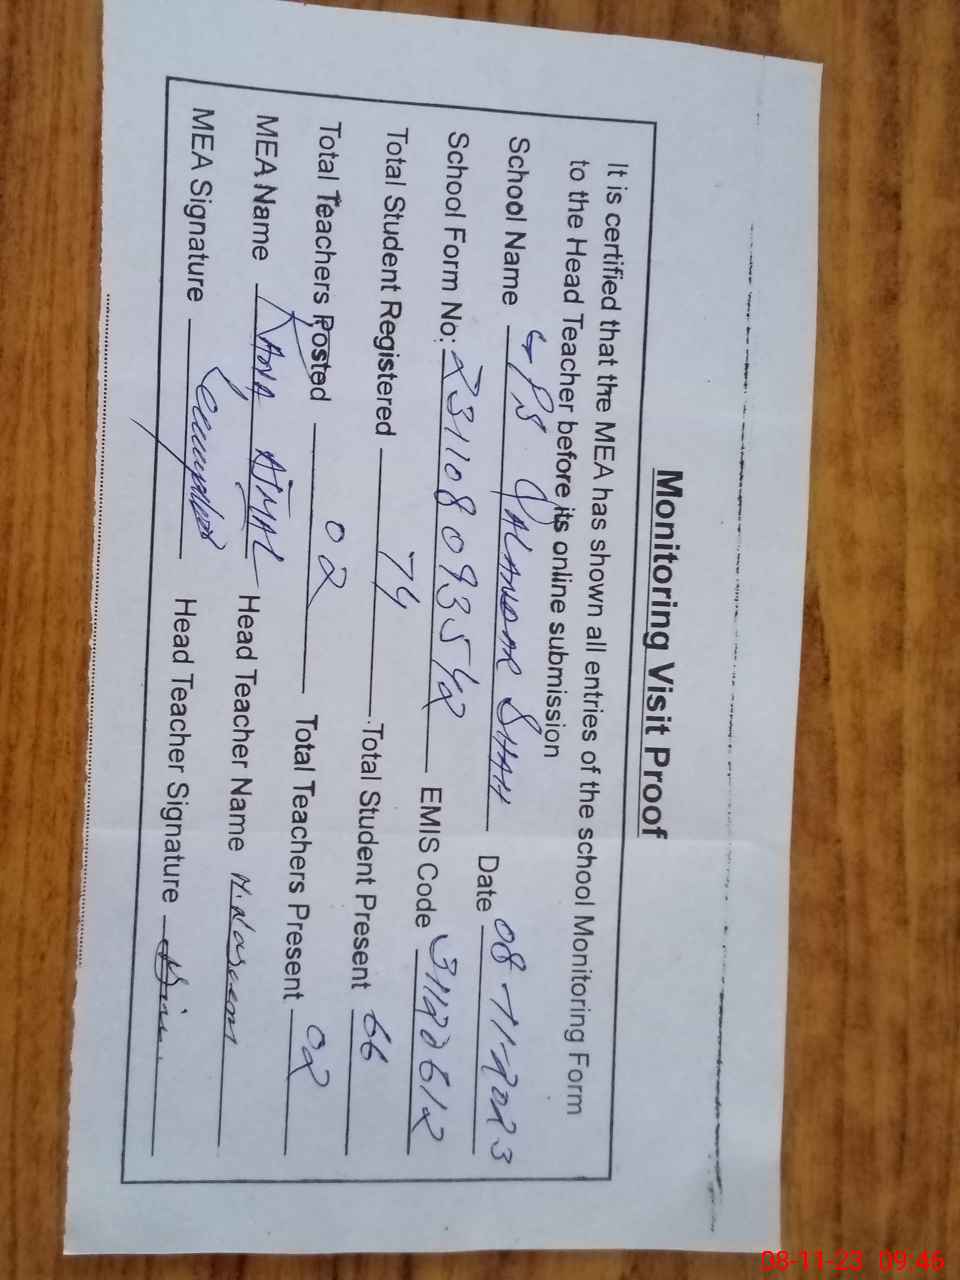 Monitoring Visit Proof
It is certified that the MEA has shown all entries of the school Monitoring Form
to the Head Teacher before its online submission
School Name GPS QALANDAR SHAH Date 08-11-2023
School Form No: 2311080935542 EMIS Code 31120612
Total Student Registered 74 Total Student Present 66
Total Teachers Posted 02 Total Teachers Present 02
MEA Name RANA AJMAL Head Teacher Name
MEA Signature Head Teacher Signature
08-11-23 09:46